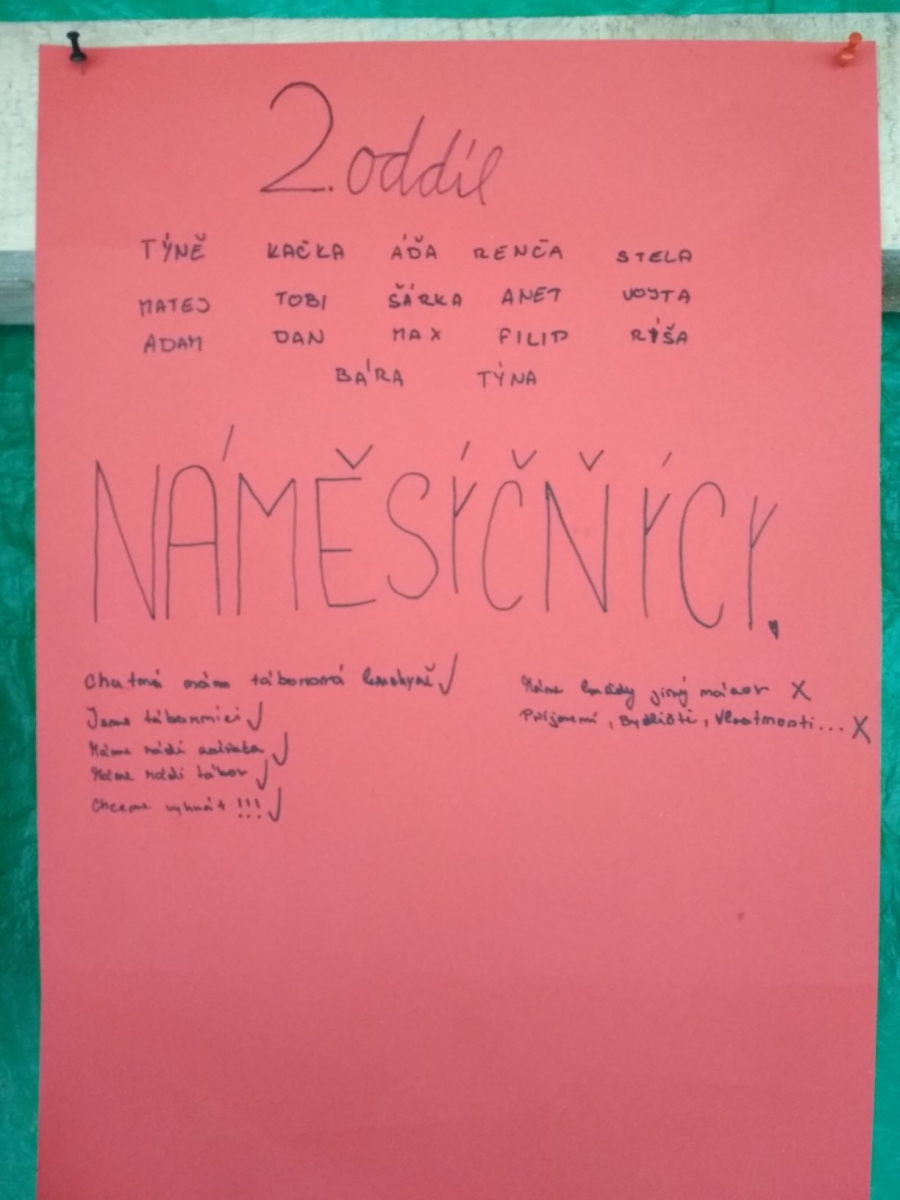 2. oddíl
TÝNĚ KAČKA ÁĎA RENČA STELA
MATEJ TOBI ŠÁRKA ANET VOJTA
ADAM DAN MAX FILIP RÝŠA
BÁRA TÝNA
NÁMĚSÝČŇÝCY.
Chutná nám táborová kuchyně ✓
Jsme táborníci ✓
Máme rádi zvířata ✓
Máme rádi tábor ✓
Chceme vyhrát !!! ✓
Máme každý jiný názor X
Příjmení, Bydliště, Vlastnosti... X